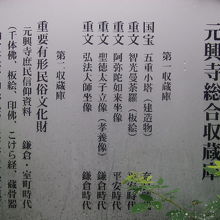 元興寺総合収蔵庫
第一収蔵庫
国宝 五重小塔(建造物)
重文 智光曼荼羅(板絵)
重文 阿弥陀如来坐像 平安時代
重文 聖徳太子立像(孝養像) 鎌倉時代
重文 弘法大師坐像 鎌倉時代
第二収蔵庫
重要有形民俗文化財
元興寺庶民信仰資料 鎌倉・室町時代
(千体佛、板絵、印佛、こけら経、蔵骨器